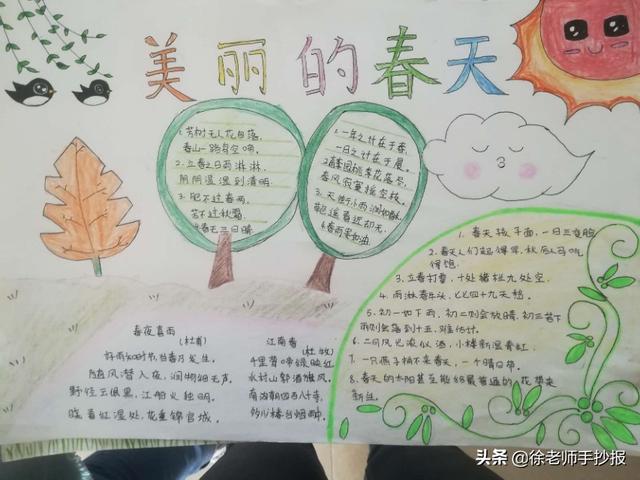 美丽的春天
1.芳树无人花自落,
春山一路鸟空啼。
2.立春之日雨淋淋,
阴阴湿湿到清明。
3.肥不过春雨,
苦不过秋霜。
4.春无三日晴
1.一年之计在于春,
一日之计在于晨。
春风寂寞摇空枝。
3.天街小雨润如酥,
草色遥看近却无。
4.春雨贵如油
1.春天孩子面,一日三变脸
3.立春打雷,十处猪栏九处空。
4.雨淋春牛头,七七四十九天愁。
5.初一如下雨,初二则会放晴,初三若下
6.二月风已浓似酒,小楼新湿青红。
7.一只燕子柄不是春天,一个晴日
8.春天的太阳甚至能给最普通的花带来
新生。
春夜喜雨
(杜甫)
好雨知时节,当春乃发生。
随风潜入夜,润物细无声。
野径云俱黑,江船火独明。
晓看红湿处,花重锦官城。
江南春
(杜牧)
千里莺啼绿映红,
水村山郭酒旗风。
南朝四百八十寺,
多少楼台烟雨中。
头条 @徐老师手抄报